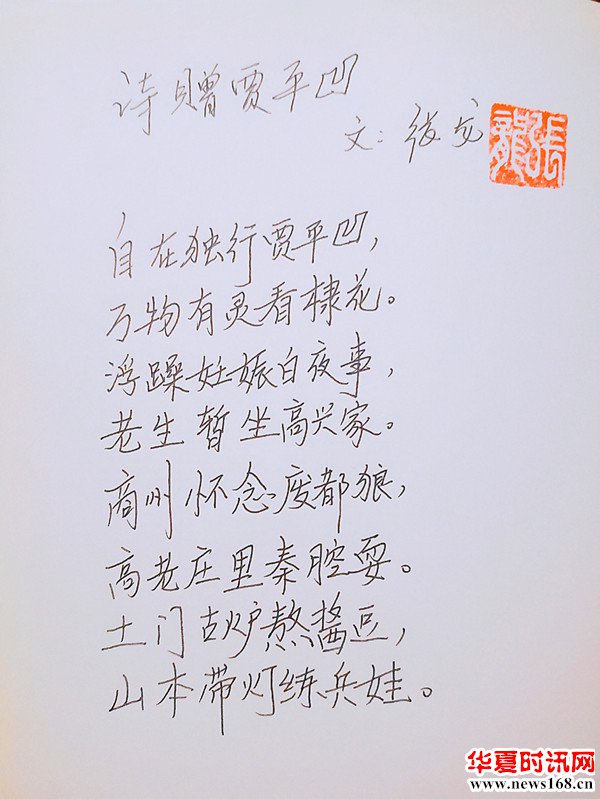 诗赠贾平凹
文：张龙
張龍
自在独行贾平凹，
万物有灵看棣花。
浮躁妊娠白夜事，
老生暂坐高兴家。
商州怀念废都狼，
高老庄里秦腔耍。
土门古炉熬酱豆，
山本带灯练兵娃。
华夏时讯网
www.news168.cn